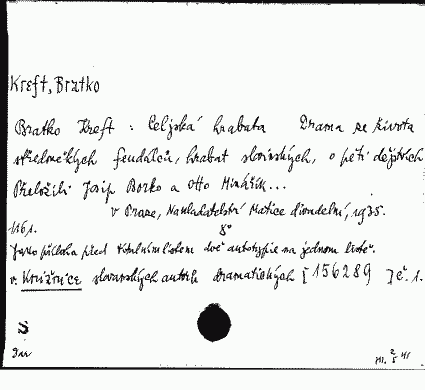 Kreft, Bratko
Bratko Kreft : Celjská hrabata Drama ze života
středověkých feudálů, hrabat slovinských, o pěti dějstvích
Přeložili Josip Berko a Otto Minářik...
v Praze, Nakladatelství Matice divadelní, 1935.
116 s. 8°
Jako příloha před titulním listem dvě autotypie na jednom listě.
v. Knižnice slovanských autorů dramatických [156289 ] č. 1.
S